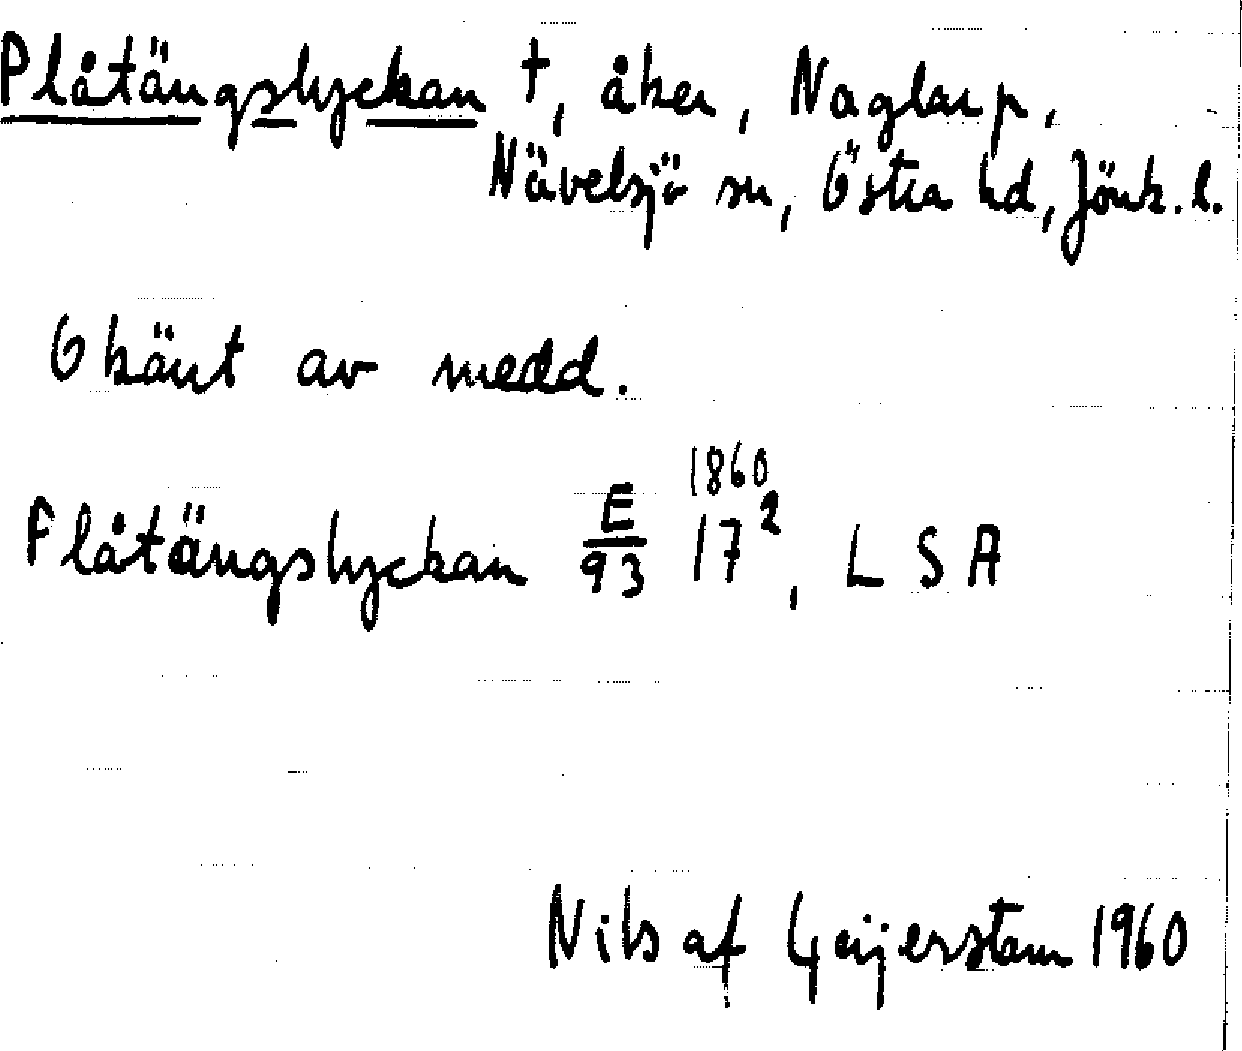 Plåtängslyckan †, åker, Naglarp,
Nävelsjö sn, Östra hd, Jönk. l.
Okänt av medd.
Flåtängslyckan E/93 1860 17², LSA
Nils af Geijerstam 1960